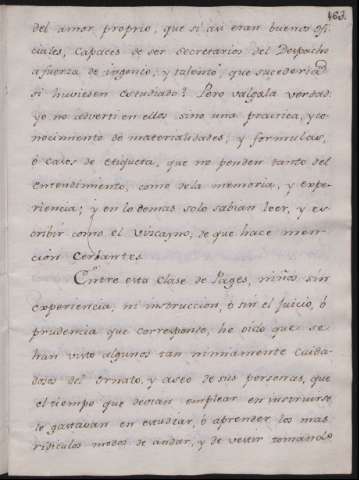 163.
del amor proprio, que si asi eran buenos ofi
ciales, capaces de ser secretarios del Despacho
a fuerza de ingenio, y talento, que sucederia
si huviesen estudiado? Pero valgala verdad:
yo no adverti en ellos sino una practica, y co
nocimiento de materialidades, y formulas,
ó casos de etiqueta, que no penden tanto del
entendimiento, como dela memoria, y expe
riencia; y en lo demas solo sabian leer, y es
cribir como el Vizcayno, de que hace men
cion Cervantes
Entre esta clase de Pages, niños sin
experiencia, ni instruccion, ó sin el juicio, ó
prudencia que corresponde, he oido que se
han visto algunos tan nimiamente cuida-
dosos del ornato, y aseo de sus personas, que
el tiempo que devian emplear en instruirse
le gastavan en estudiar, ó aprender los mas
ridiculos modos de andar, y de vestir tomando